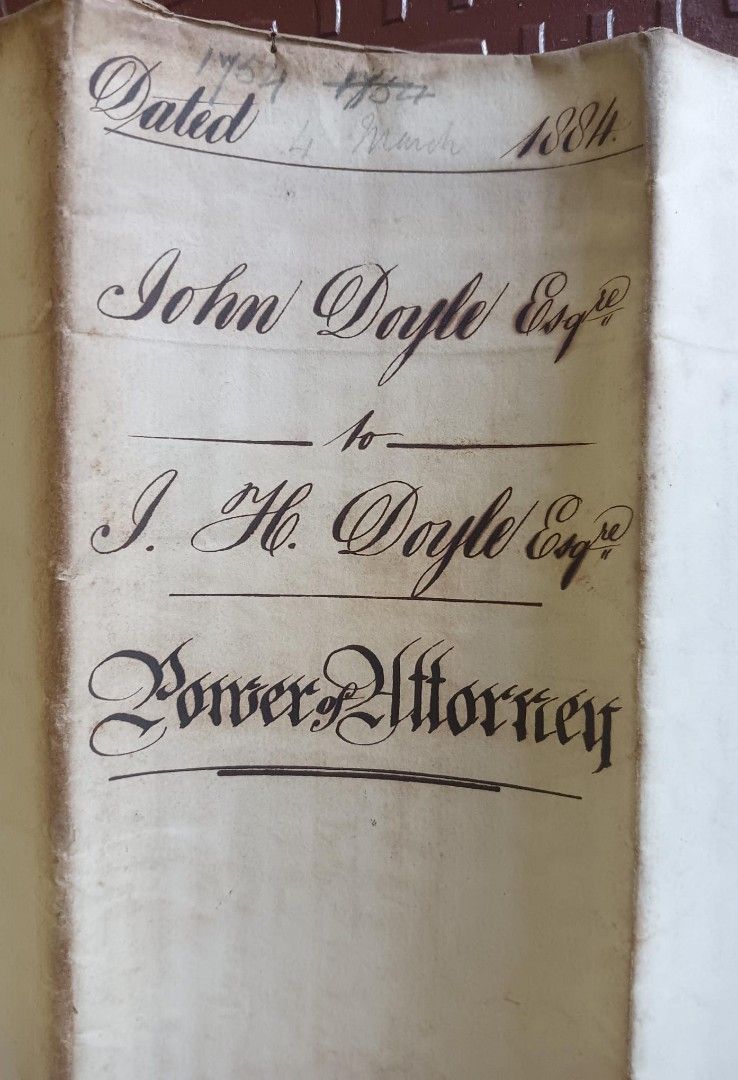 1754 1754
Dated 4 March 1884.
John Doyle Esqre
to
J. H. Doyle Esqre
Power of Attorney